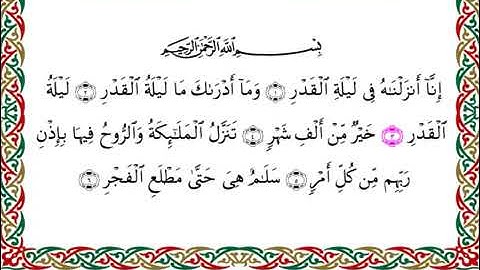 بِسْمِ ٱللَّهِ ٱلرَّحْمَٰنِ ٱلرَّحِيمِ
إِنَّآ أَنزَلْنَٰهُ فِى لَيْلَةِ ٱلْقَدْرِ ۝١ وَمَآ أَدْرَىٰكَ مَا لَيْلَةُ ٱلْقَدْرِ ۝٢ لَيْلَةُ
ٱلْقَدْرِ ۝٣ خَيْرٌ مِّنْ أَلْفِ شَهْرٍ ۝٤ تَنَزَّلُ ٱلْمَلَٰٓئِكَةُ وَٱلرُّوحُ فِيهَا بِإِذْنِ
رَبِّهِم مِّن كُلِّ أَمْرٍ ۝٥ سَلَٰمٌ هِىَ حَتَّىٰ مَطْلَعِ ٱلْفَجْرِ ۝٦